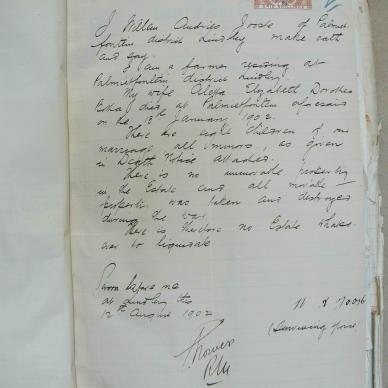 I Willem Andries Jooste of Palmiet
fontein district Lindley make oath
and say:
I am a farmer residing at
Palmietfontein district Lindley
My wife Aletta Elizabeth Dorothea
died at Palmietfontein aforesaid
on the 13th January 1902.
There are eight children of our
marriage all minors, as given
in Death Notice attached.
There is no immovable property
in the Estate and all movable
property was taken and destroyed
during the war
There is therefore no Estate whatso
ever to liquidate
Sworn before me
at Lindley this
12th August 1902
(Surviving spouse
RM